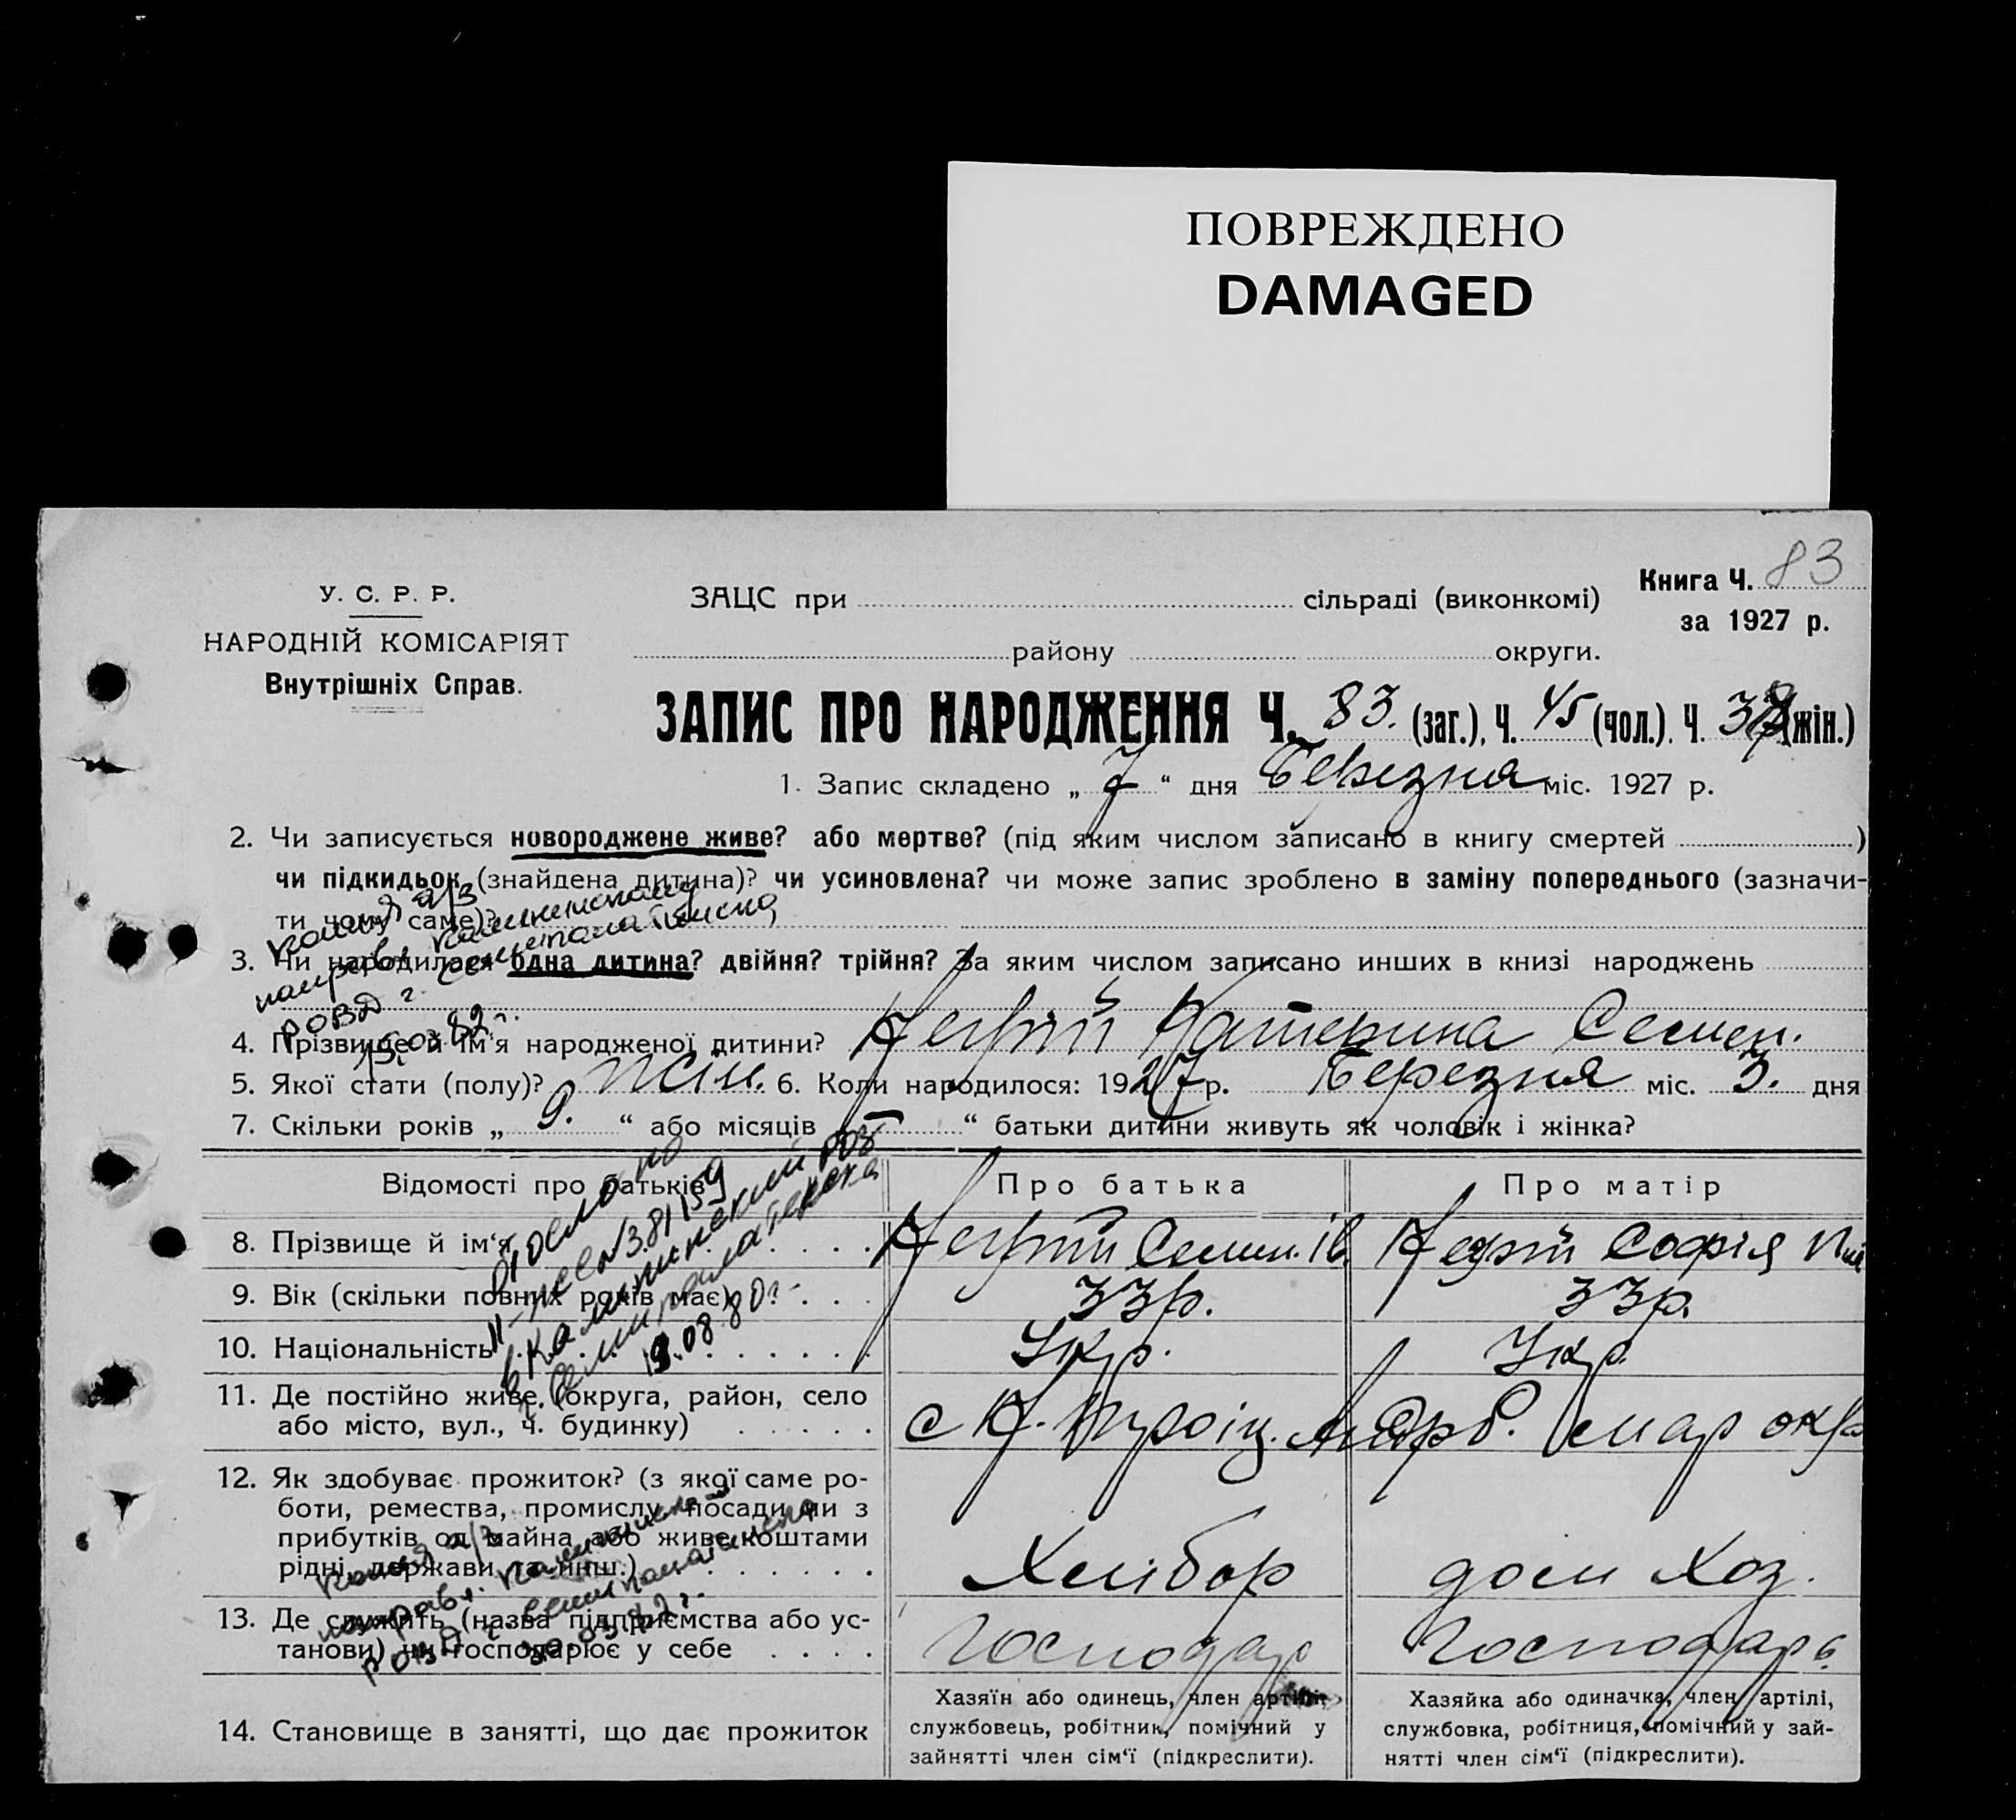 ПОВРЕЖДЕНО
DAMAGED
Книга Ч. 83
за 1927 р.
У. С. Р. Р.
НАРОДНІЙ КОМІСАРІЯТ
Внутрішніх Справ.
ЗАЦС при сільраді (виконкомі)
району округи.
ЗАПИС ПРО НАРОДЖЕННЯ Ч. 83. (заг.), Ч. 45 (чол.). Ч. 38 (жін.)
1. Запис складено „ 7 “ дня Березня міс. 1927 р.
2. Чи записується новороджене живе? або мертве? (під яким числом записано в книгу смертей )
чи підкидьок (знайдена дитина)? чи усиновлена? чи може запис зроблено в заміну попереднього (зазначи-
ти чому саме)?
копия а/з
направл. Калининскому
РОВД г. Семипалатинска
15.03.82 г.
3. Чи народилася одна дитина? двійня? трійня? За яким числом записано инших в книзі народжень
4. Прізвище й ім‘я народженої дитини? Катерина Семен.
5. Якої стати (полу)? жін. 6. Коли народилося: 1927 р. Березня міс. 3. дня
7. Скільки років „ 9. “ або місяців „ — “ батьки дитини живуть як чоловік і жінка?
Відомості про батьків
Про батька
Про матір
8. Прізвище й ім‘я Семен. Ів. Софія
9. Вік (скільки повних років має) 33 р. 33 р.
10. Національність Укр. Укр.
в Калининский РОВ
г. Семипалатинска
19.08.80 г.
11. Де постійно живе, (округа, район, село
або місто, вул., ч. будинку)
с К. Троіц. окр
12. Як здобуває прожиток? (з якої саме ро-
боти, ремества, промислу, посади чи з
прибутків од майна або живе коштами
рідні, держави та инш.)
Хлібор дом Хоз.
копия а/з
направл. Калининск
РОВД г. Семипалатинска
30.03.82 г.
13. Де служить (назва підприємства або ус-
танови) чи господарює у себе
Господар Господар
14. Становище в занятті, що дає прожиток
Хазяїн або одинець, член артілі,
службовець, робітник, помічний у
зайнятті член сім‘ї (підкреслити).
Хазяйка або одиначка, член артілі,
службовка, робітниця, помічний у зай-
нятті член сім‘ї (підкреслити).